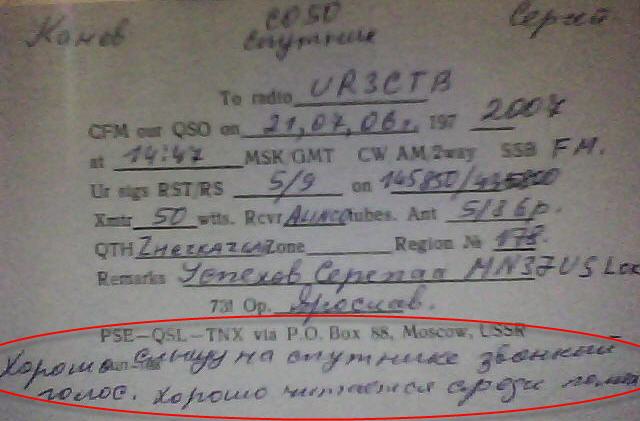 Канев СО50 Сергий
спутник
To radio UR3CTB
CFM our QSO on 21,07,06г. 197 2007
at 14:47 MSK/GMT CW AM/2way SSB F M.
Ur sigs RST/RS 5/9 on 145850/
Xmtr 50 wtts. Rcvr Алинсо tubes. Ant 5/8 GP.
QTH Zone Region № 178.
Remarks Успехов MN37US Loc
731 Op. Ярослав.
PSE—QSL—TNX via P.O. Box 88, Moscow, USSR
Хорошо слышу на спутнике звонкий
голос. Хорошо читается среди